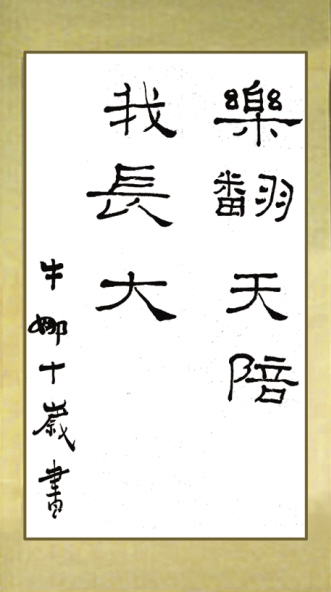 樂翻天陪
我長大
牛娜十歲書